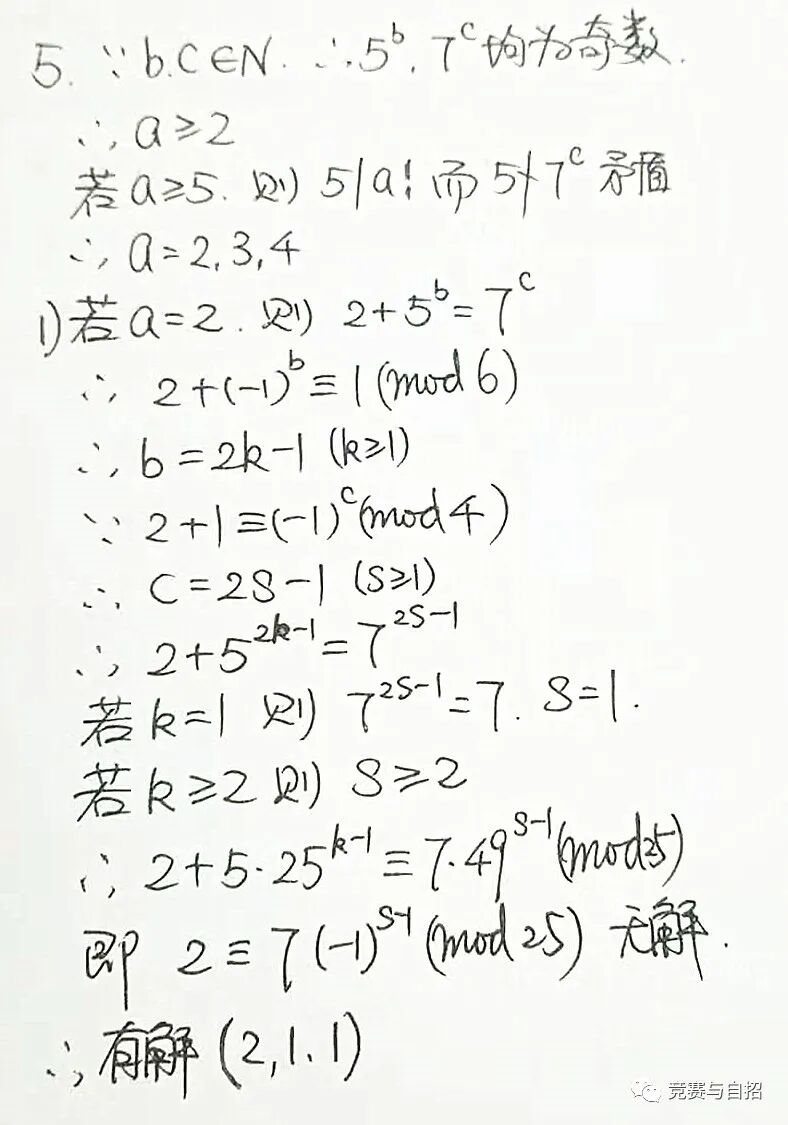 5. ∵ b.C∈N. ∴ 5^b. 7^c 均为奇数.
∴ a≥2
若 a≥5. 则 5|a! 而 5∤7^c 矛盾
∴ a=2,3,4
1) 若 a=2. 则 2+5^b=7^c
∴ 2+(-1)^b≡1(mod 6)
∴ b=2k-1 (k≥1)
∵ 2+1≡(-1)^c(mod 4)
∴ C=2S-1 (S≥1)
∴ 2+5^{2k-1}=7^{2S-1}
若 k=1 则 7^{2S-1}=7. S=1.
若 k≥2 则 S≥2
∴ 2+5·25^{k-1}≡7·49^{S-1}(mod25)
即 2≡7(-1)^{S-1}(mod 25) 无解.
∴ 有解 (2,1、1)
竞赛与自招